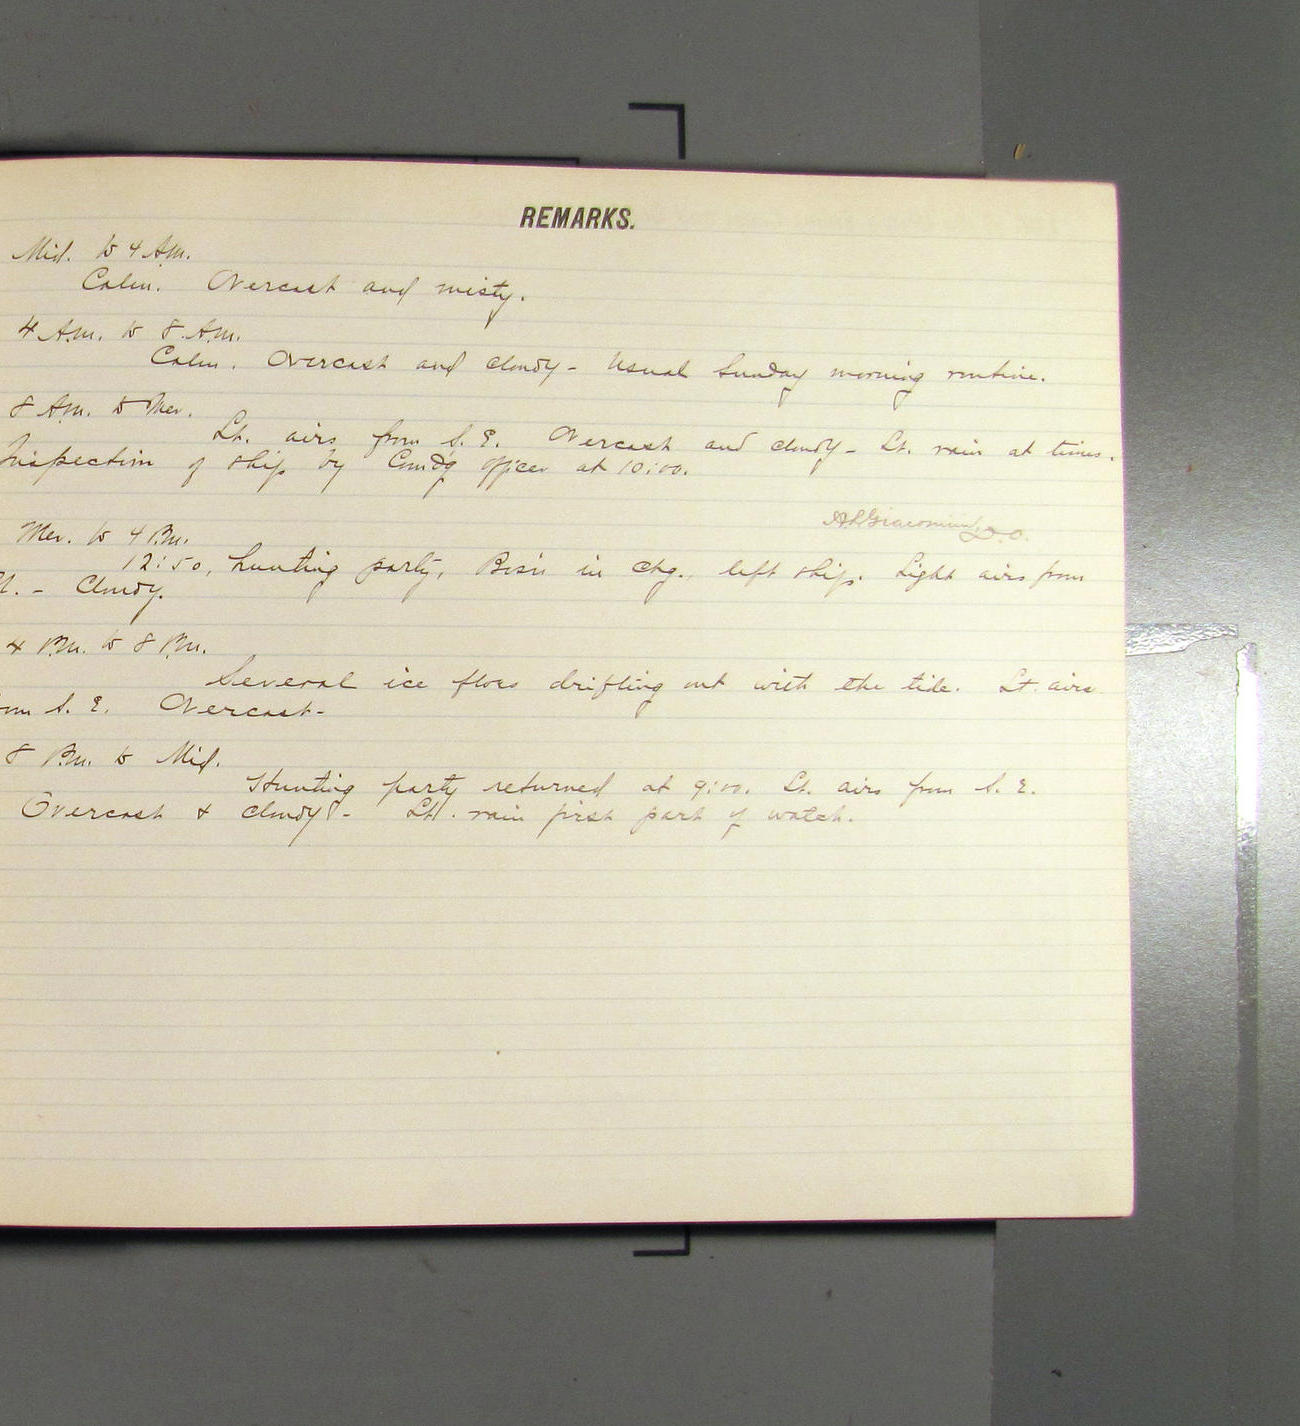 REMARKS.
Mid. to 4 A.m.
Calm. Overcast and misty.
4 A.m. to 8 A.m.
Calm. Overcast and cloudy - Usual Sunday morning routine.
8 A.m. to Mer.
Lt. airs from S. E. Overcast and cloudy - Lt. rain at times.
Inspection of ship by Com'd'g officer at 10:00.
Mer. to 4 P.m.
12:50, hunting party, Bos'n in chg., left ship. Light airs from
- Cloudy.
4 P.m. to 8 P.m.
Several ice floes drifting out with the tide. Lt. airs
from S. E. Overcast -
8 P.m. to Mid.
Hunting party returned at 9:00. Lt. airs from S. E.
Overcast & cloudy - Lt. rain first part of watch.